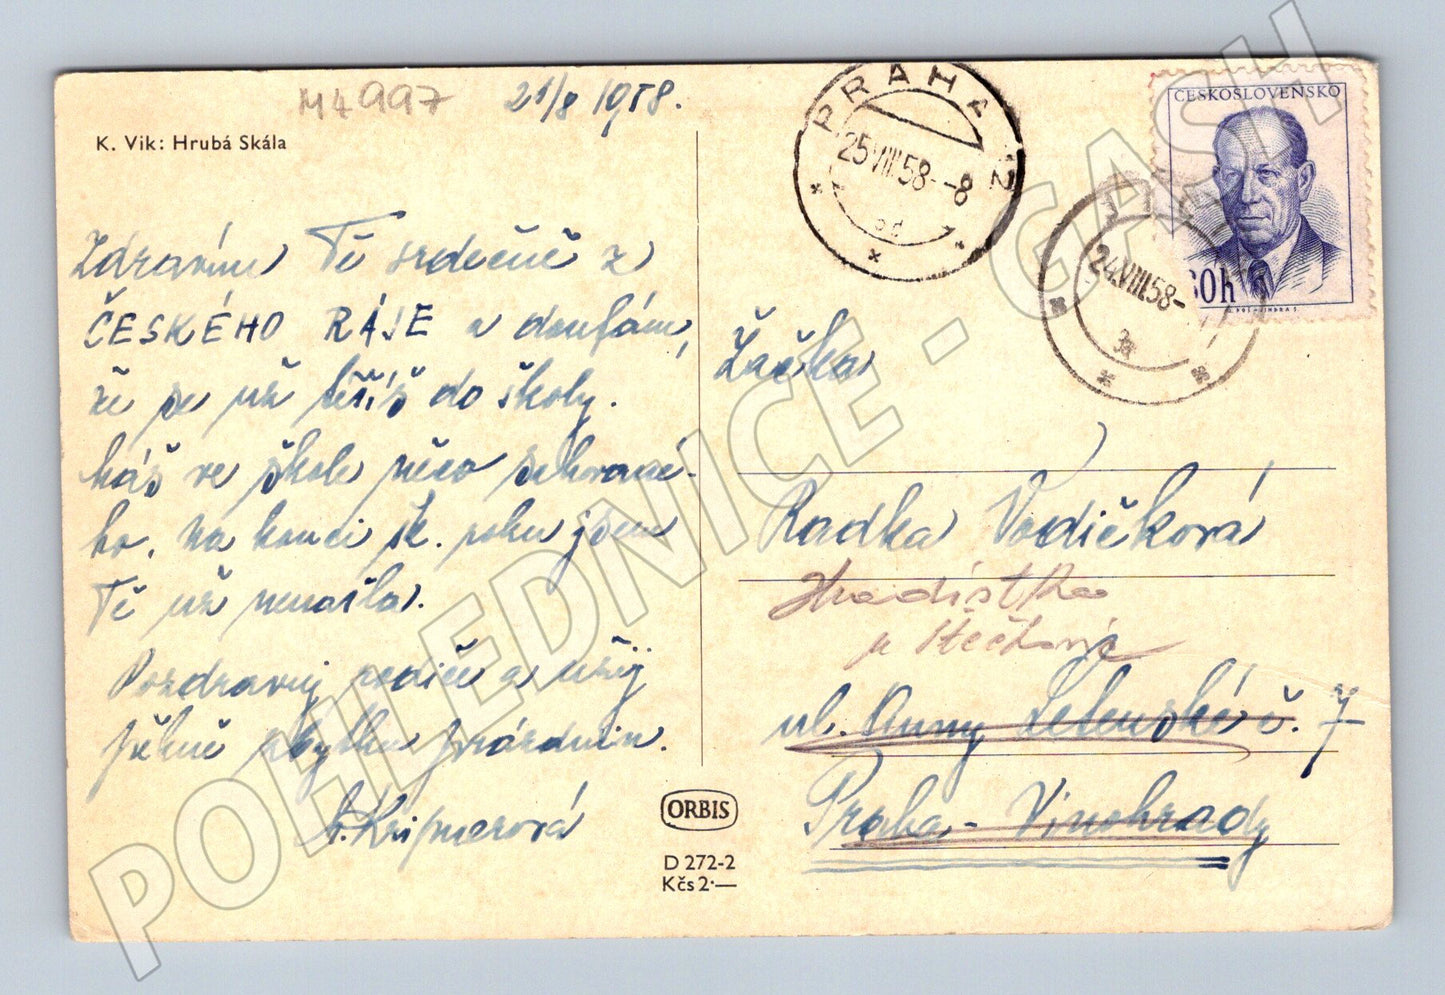 M4997
21/8 1958.
K. Vik: Hrubá Skála
Zdravím Tě srdečně z
ČESKÉHO RÁJE a doufám,
že se už těšíš do školy.
Máš ve škole něco schované-
ho. Na konci šk. roku jsem
Tě už nenašla.
Pozdravuj rodiče a užij
pěkně zbytku prázdnin.
PRAHA 2
25.VIII.58–8
24.VIII.58–
3a
ČESKOSLOVENSKO
60h
Žačka
Radka Vodičková
Hradištko
u Štěchovic
ul. Anny Letenské č. 7
Praha – Vinohrady
ORBIS
D 272-2
Kčs 2·—
POHLEDNICE - GASH